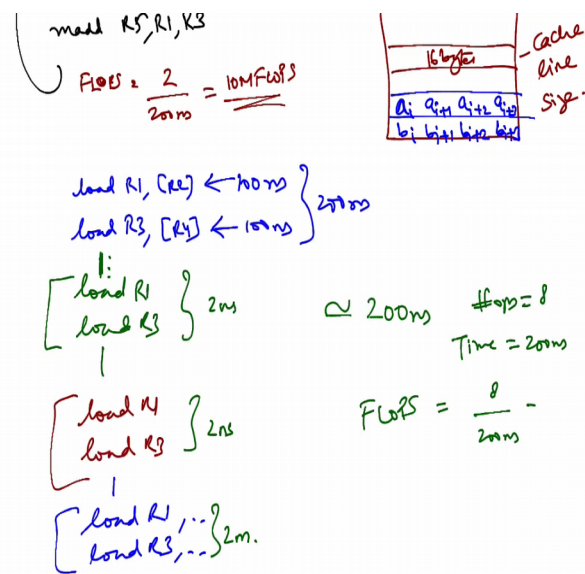 madd R5,R1,R3
FLOPS = 2 / 200ns = 10MFLOPS
16 bytes
Cache
line
size.
ai ai+1 ai+2 ai+3
bi bi+1 bi+2 bi+3
load R1, [R2] ← 100ns
load R3, [R4] ← 100ns
} 200ns
load R1
load R3
} 2ns
≃ 200ns
#ops = 8
Time = 200ns
load R1
load R3
} 2ns
FLOPS = 8 / 200ns -
load R1, ..
load R3, ..
} 2n.